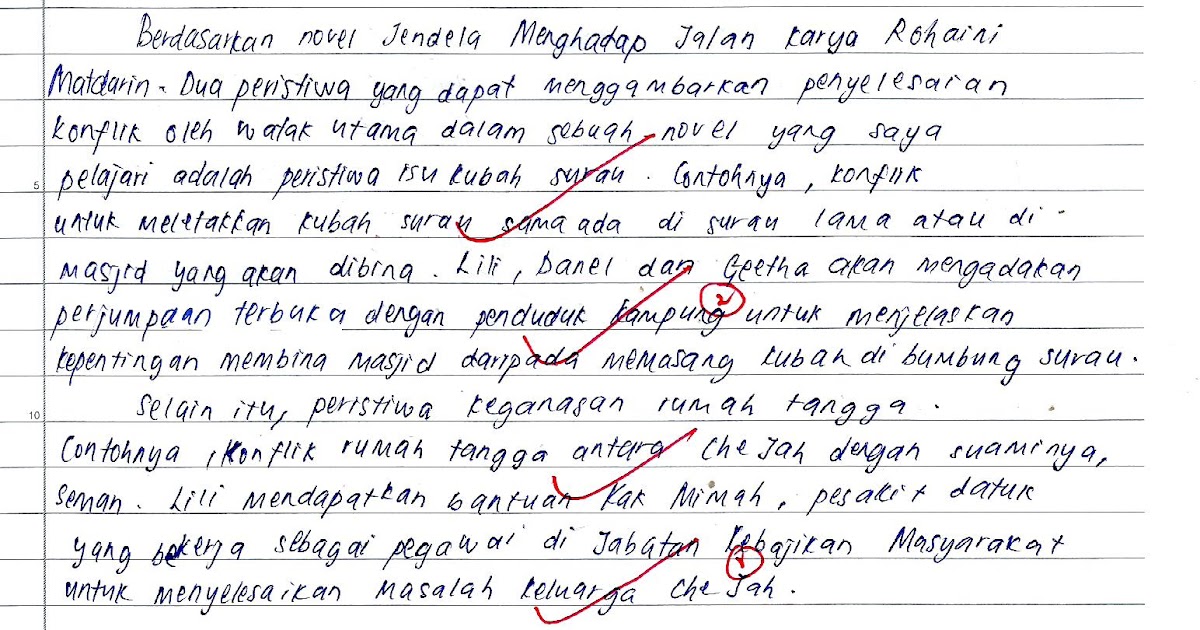 Berdasarkan novel Jendela Menghadap Jalan karya Rohaini
Matdarin. Dua peristiwa yang dapat menggambarkan penyelesaian
konflik oleh watak utama dalam sebuah novel yang saya
5 pelajari adalah peristiwa isu kubah surau. Contohnya, konflik
untuk meletakkan kubah surau sama ada di surau lama atau di
masjid yang akan dibina. Lili, Danel dan Geetha akan mengadakan
perjumpaan terbuka dengan penduduk kampung 2 untuk menjelaskan
kepentingan membina masjid daripada memasang kubah di bumbung surau.
10 Selain itu, peristiwa keganasan rumah tangga.
Contohnya, konflik rumah tangga antara Che Jah dengan suaminya,
Seman. Lili mendapatkan bantuan Kak Mimah, pesakit datuk
yang bekerja sebagai pegawai di Jabatan Kebajikan Masyarakat
untuk menyelesaikan masalah keluarga Che Jah.